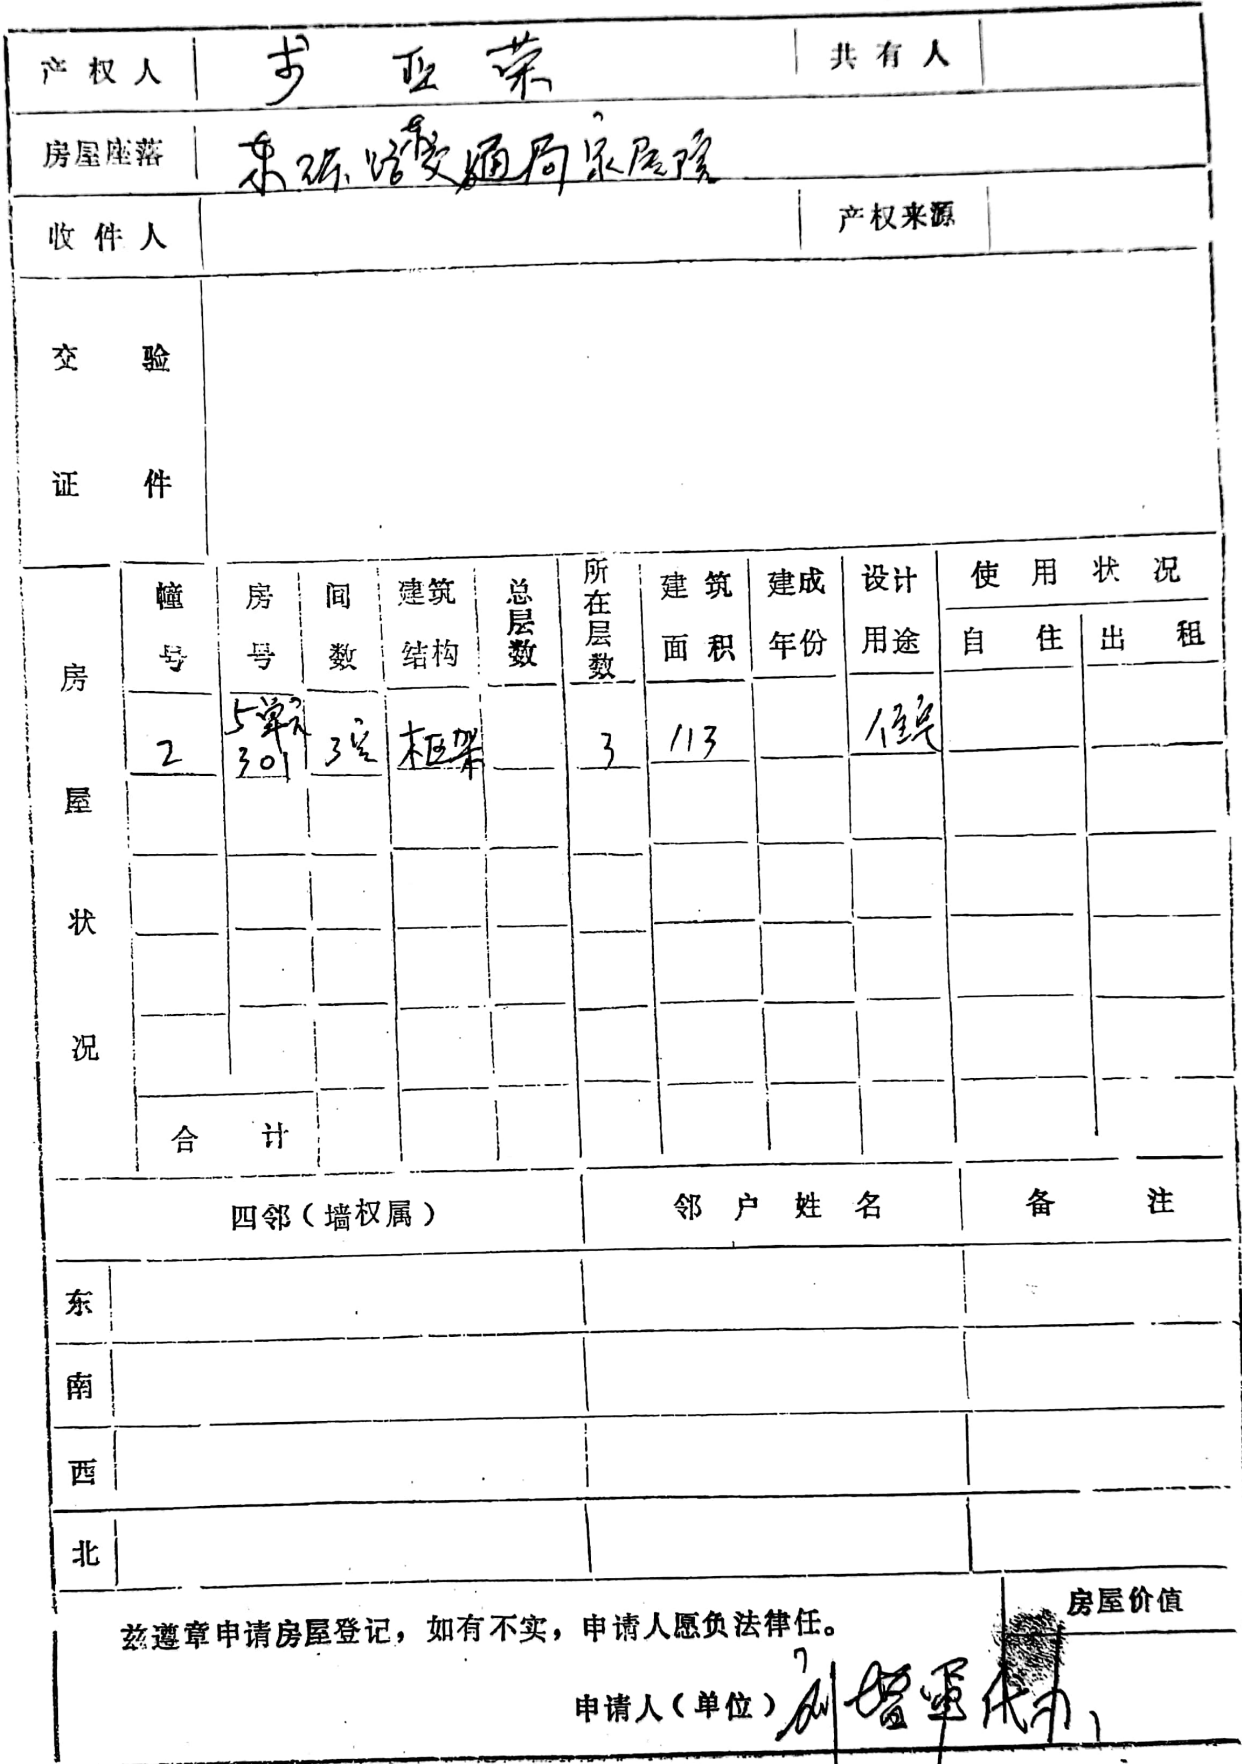 产权人 亚荣 共有人
房屋座落 东环路交通局家属院
收件人 产权来源
交验
证件
房屋状况
幢号 房号 间数 建筑结构 总层数 所在层数 建筑面积 建成年份 设计用途 使用状况
自住 出租
2 5单元301 3室 框架 3 113 住宅
合计
四邻（墙权属） 邻户姓名 备注
东
南
西
北
房屋价值
兹遵章申请房屋登记，如有不实，申请人愿负法律任。
申请人（单位） 刘增军代办